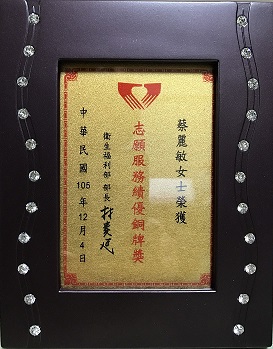 蔡麗敏女士榮獲
志願服務績優銅牌獎
衛生福利部 部長
中華民國105年12月4日